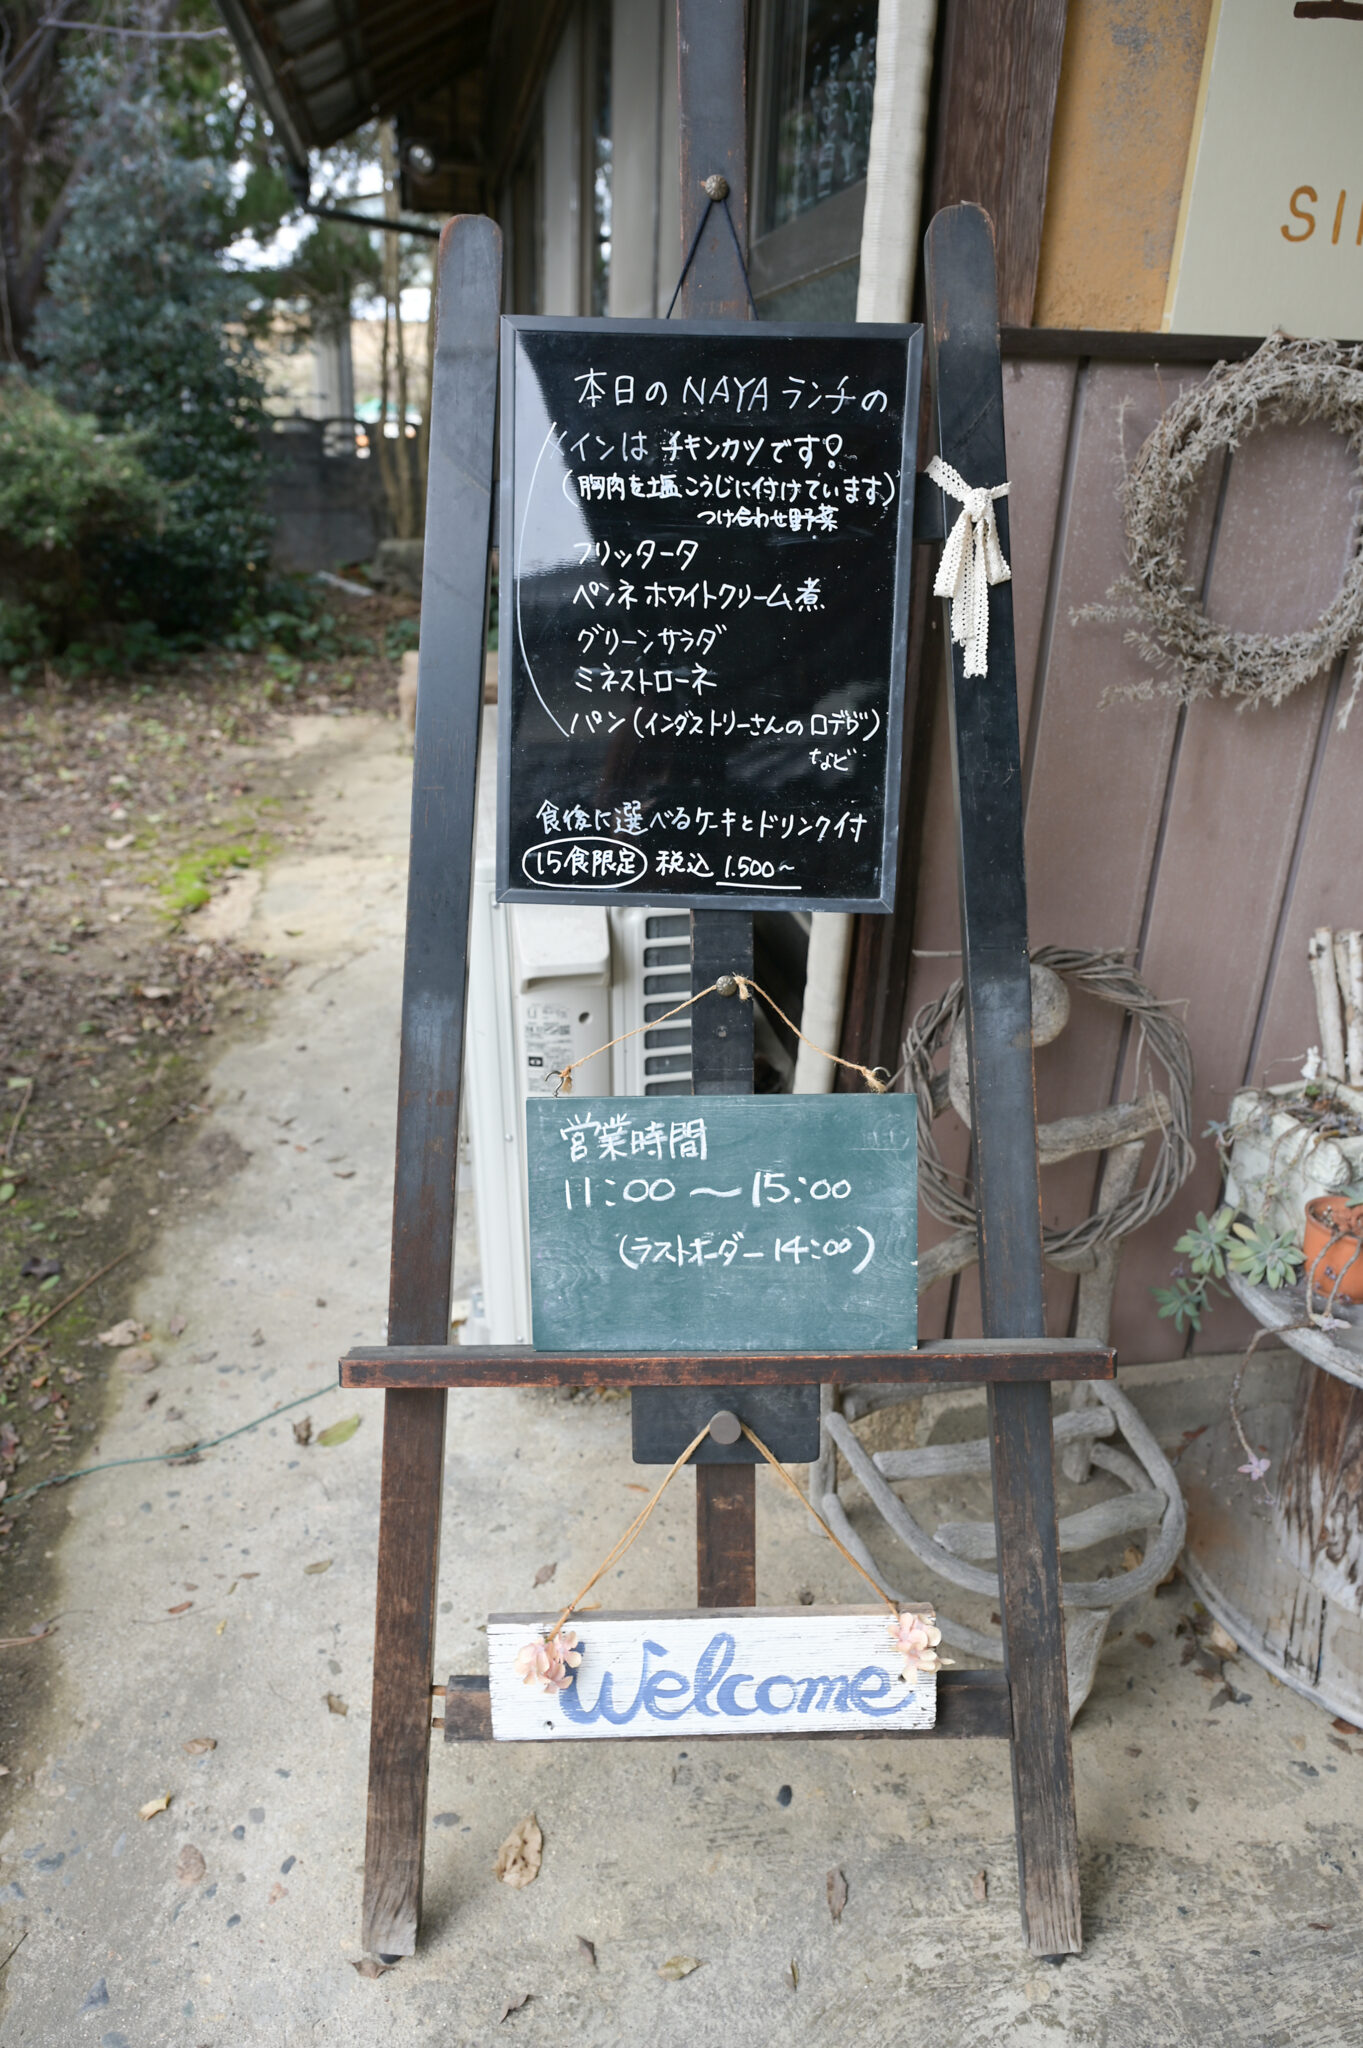 SI
本日のNAYAランチの
メインは チキンカツです!
(胸肉を塩こうじに付けています)
つけ合わせ野菜
フリッタータ
ペンネホワイトクリーム煮
グリーンサラダ
ミネストローネ
パン(インダストリーさんのロデヴ)
など
食後に選べるケーキとドリンク付
15食限定 税込 1.500~
営業時間
11:00~15:00
(ラストオーダー14:00)
Welcome